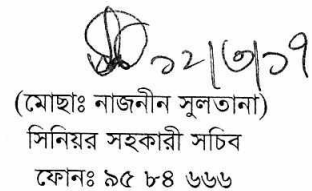 ১২/৩/১৭
(মোছাঃ নাজনীন সুলতানা)
সিনিয়র সহকারী সচিব
ফোনঃ ৯৫ ৮৪ ৬৬৬